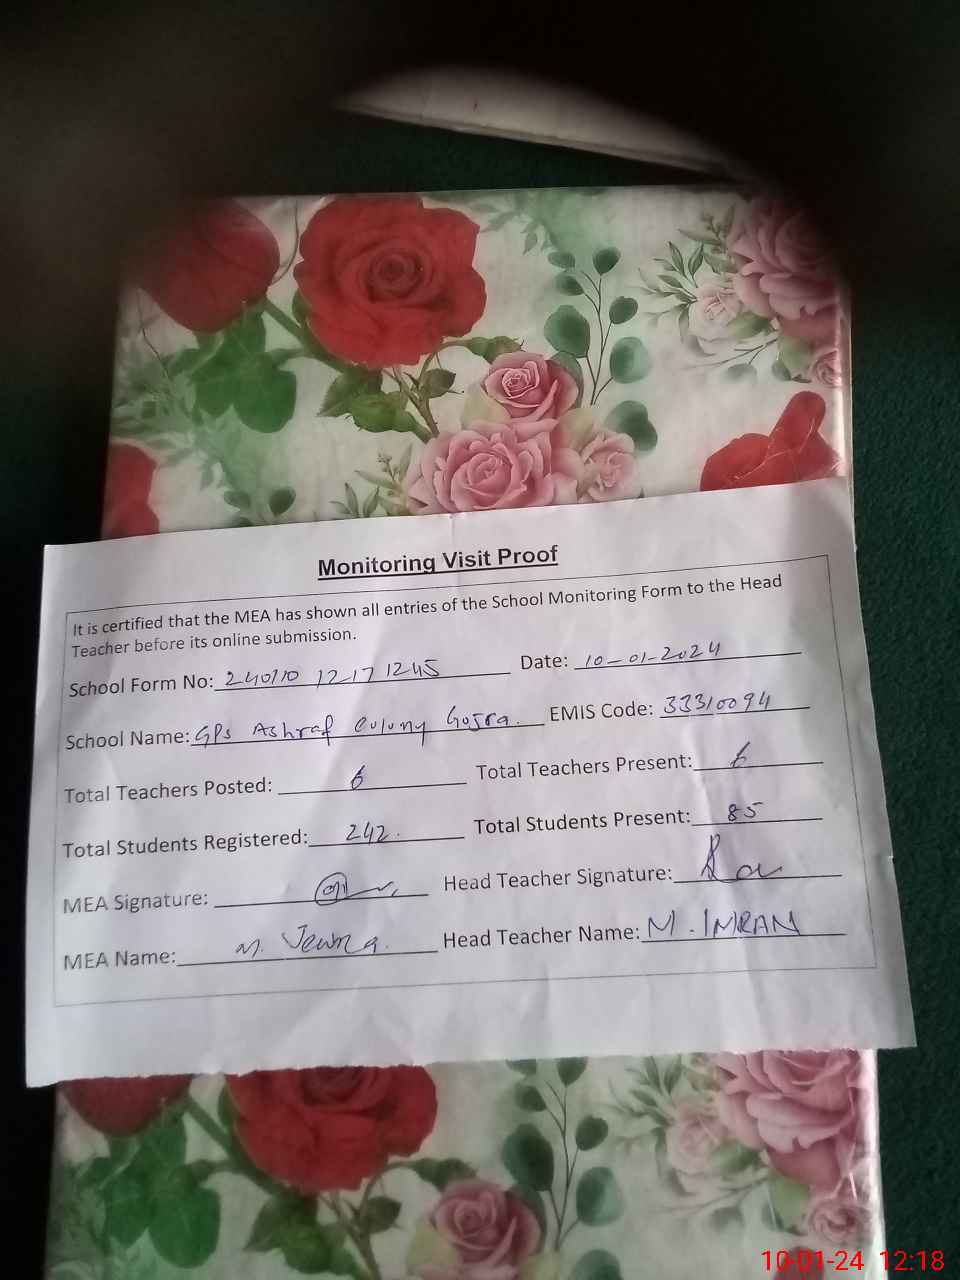 Monitoring Visit Proof
It is certified that the MEA has shown all entries of the School Monitoring Form to the Head
Teacher before its online submission.
School Form No: 240110 12171245 Date: 10-01-2024
School Name: GPS Ashraf colony Gojra. EMIS Code: 33310094
Total Teachers Posted: 6 Total Teachers Present: 6
Total Students Registered: 242. Total Students Present: 85
MEA Signature: Head Teacher Signature:
MEA Name: M. Head Teacher Name: M. IMRAN
10-01-24 12:18